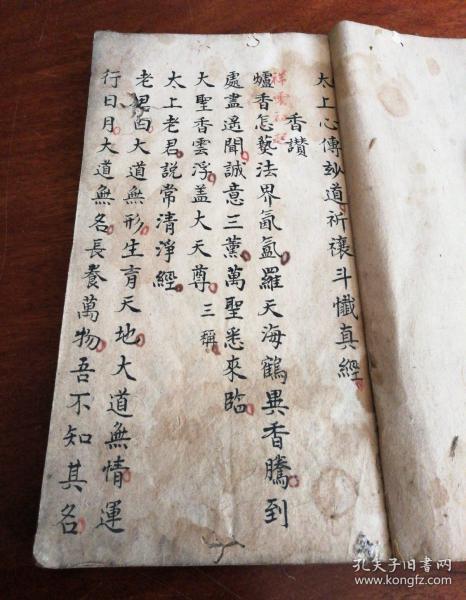 太上心傳玅道祈禳斗懺真經
香讚
祥雲
爐香怎爇法界氤氲羅天海鶴異香騰到
處盡遥聞誠意三薰萬聖悉來臨
大聖香雲浮盖大天尊三稱
太上老君説常清淨經
老君曰大道無形生育天地大道無情運
行日月大道無名長養萬物吾不知其名
孔夫子旧书网
www.kongfz.com